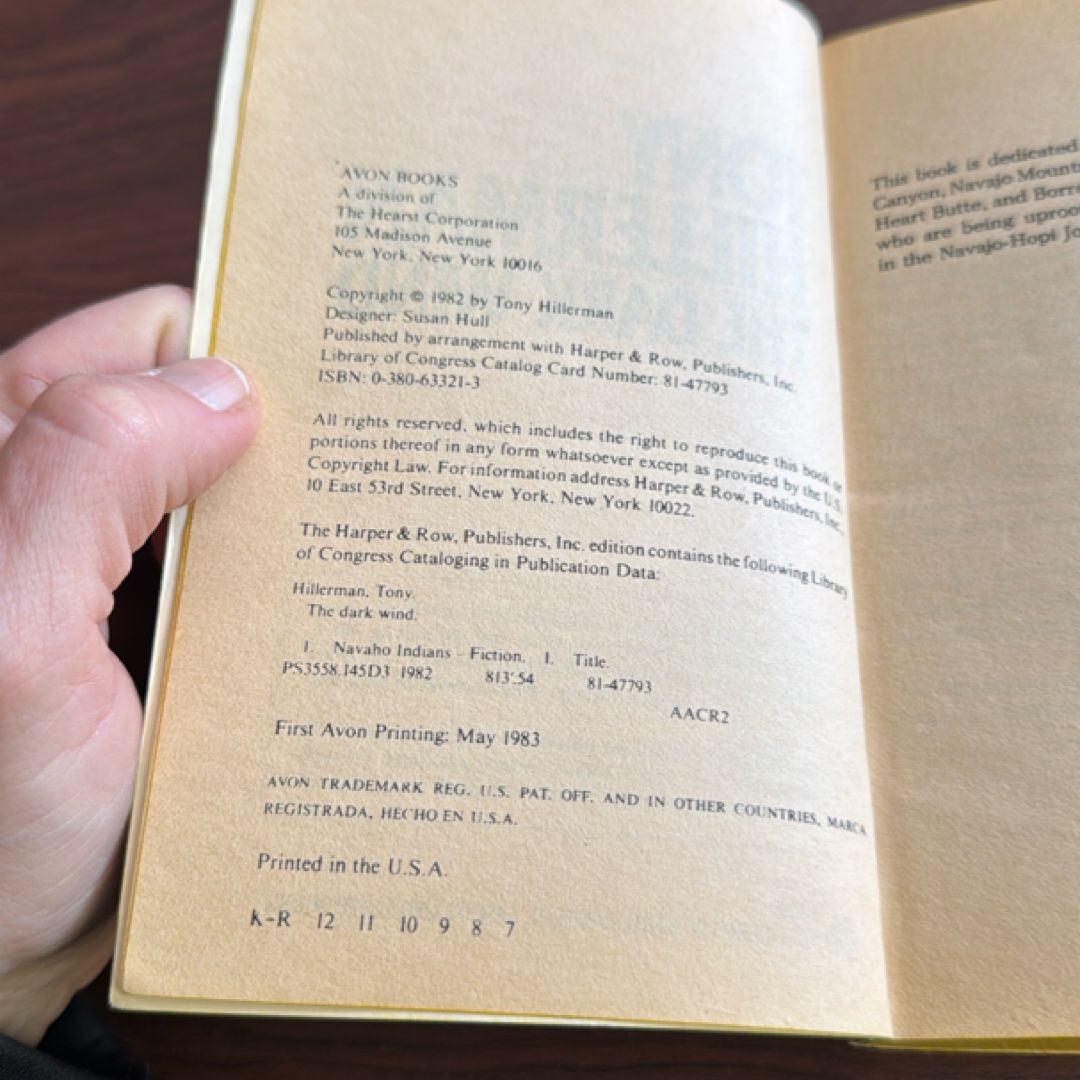 AVON BOOKS
A division of
The Hearst Corporation
105 Madison Avenue
New York, New York 10016
Copyright © 1982 by Tony Hillerman
Designer: Susan Hull
Published by arrangement with Harper & Row, Publishers, Inc.
Library of Congress Catalog Card Number: 81-47793
ISBN: 0-380-63321-3
All rights reserved, which includes the right to reproduce this book or
portions thereof in any form whatsoever except as provided by the U.S.
Copyright Law. For information address Harper & Row, Publishers, Inc.,
10 East 53rd Street, New York, New York 10022.
The Harper & Row, Publishers, Inc. edition contains the following Library
of Congress Cataloging in Publication Data:
Hillerman, Tony.
The dark wind.
1. Navaho Indians Fiction. I. Title.
PS3558.I45D3 1982 813'.54 81-47793
AACR2
First Avon Printing: May 1983
AVON TRADEMARK REG. U.S. PAT. OFF. AND IN OTHER COUNTRIES, MARCA
REGISTRADA, HECHO EN U.S.A.
Printed in the U.S.A.
K-R 12 11 10 9 8 7
This book is dedicated
Canyon, Navajo Mount
Heart Butte, and Borre
who are being uproo
in the Navajo-Hopi Jo